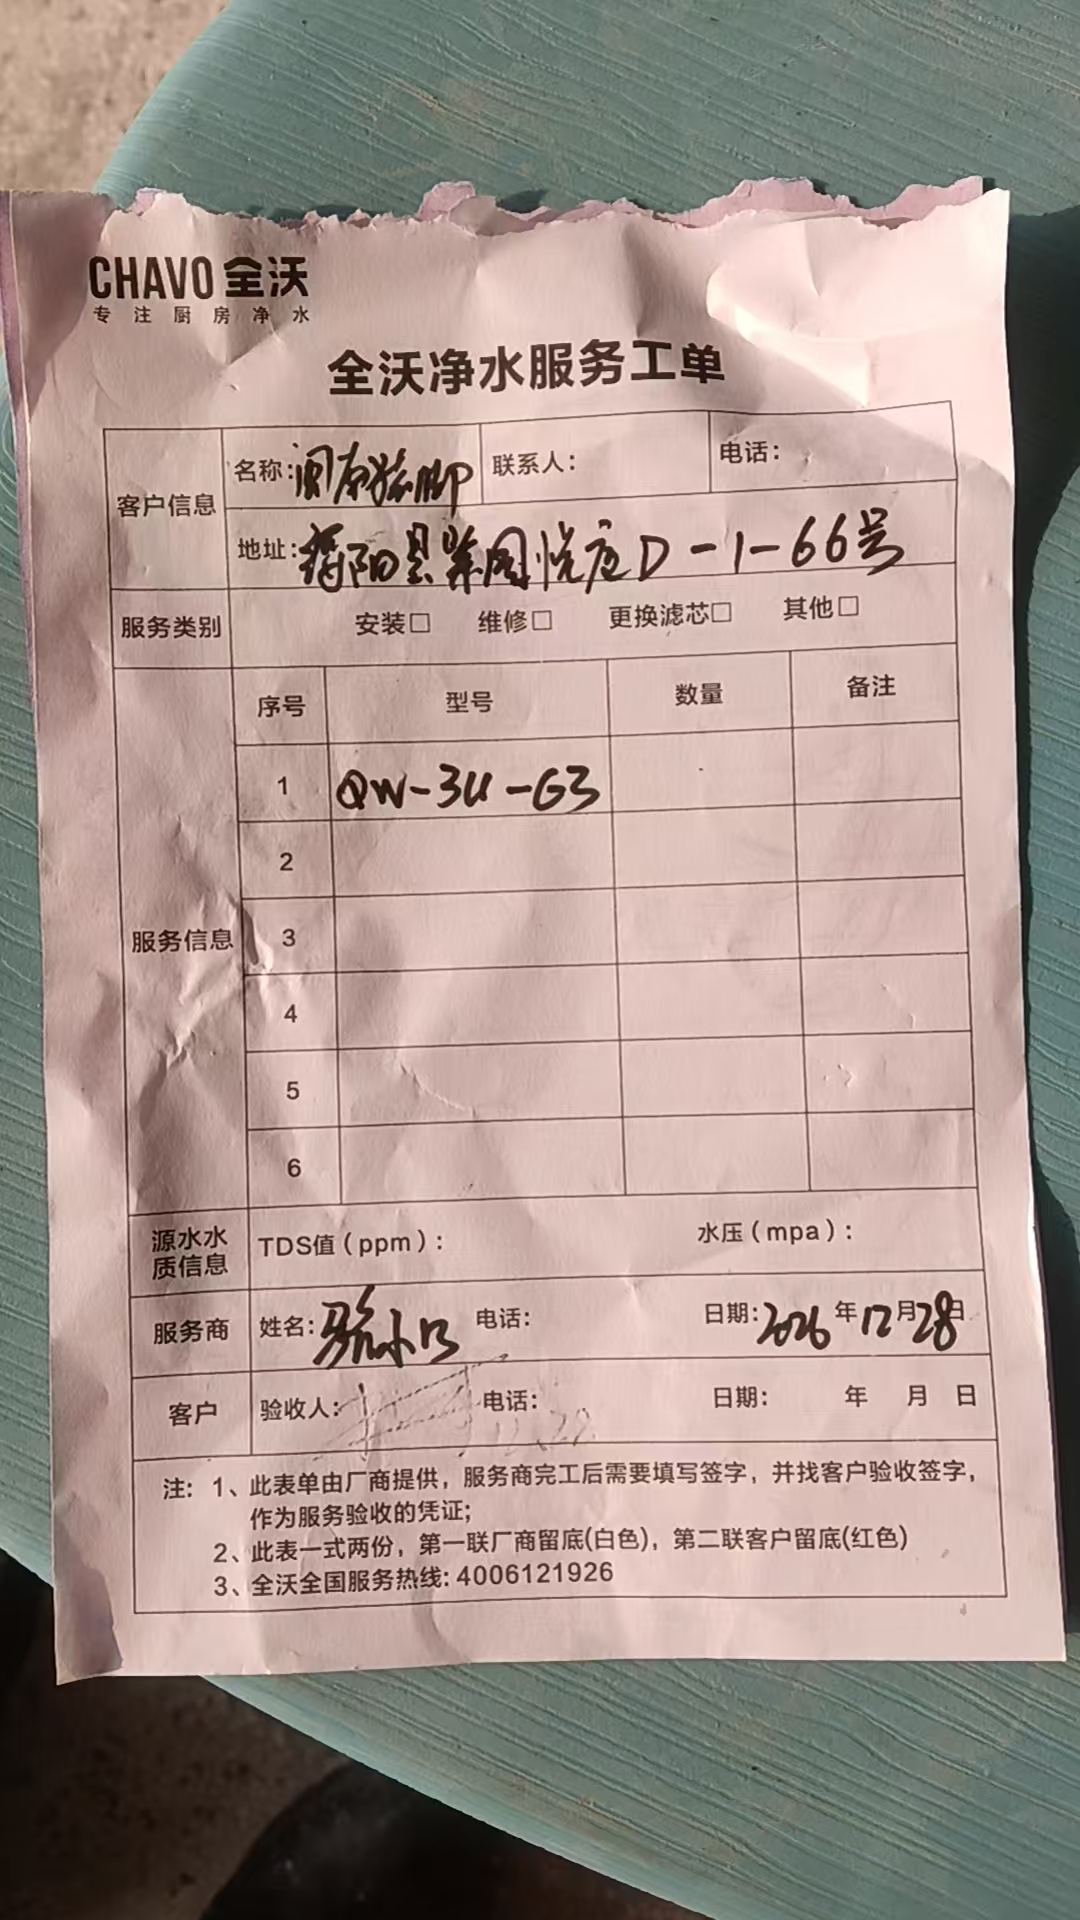 CHAVO 全沃
专注厨房净水
全沃净水服务工单
客户信息
名称:闽南猪脚
联系人:
电话:
地址:阳县紫园悦府D-1-66号
服务类别
安装□ 维修□ 更换滤芯□ 其他□
服务信息
序号 型号 数量 备注
1 QW-3U-G3
2
3
4
5
6
源水水质信息
TDS值(ppm):
水压(mpa):
服务商
姓名:
电话:
日期:2026年12月28日
客户
验收人:
电话:
日期: 年 月 日
注:1、此表单由厂商提供,服务商完工后需要填写签字,并找客户验收签字,
作为服务验收的凭证;
2、此表一式两份,第一联厂商留底(白色),第二联客户留底(红色)
3、全沃全国服务热线:4006121926